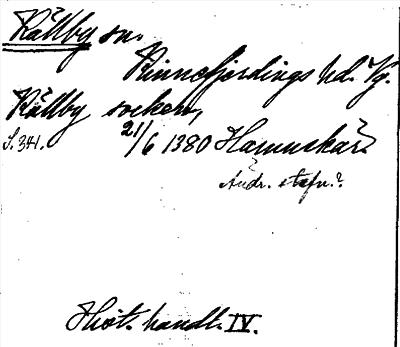 Källby sn.
Kinnefjerdings hd. Vg.
Källby socken,
S. 341. 21/6 1380 Hamnskär?
Ändr. stafn.?
Hist. handl. IV.